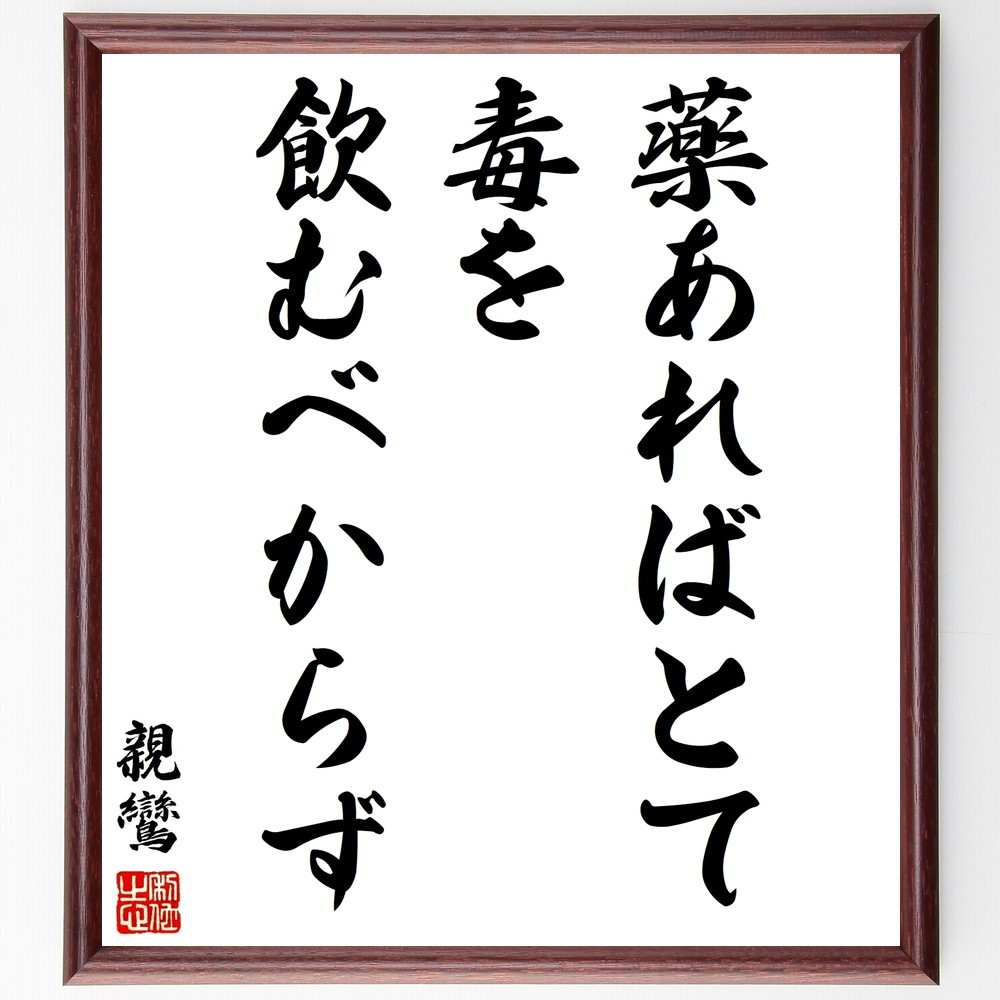 薬あればとて
毒を
飲むべからず
親鸞